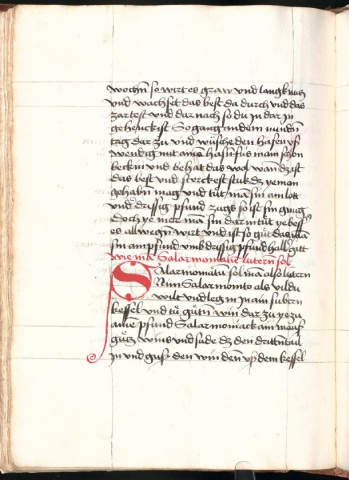 wochn so wirt es graw und langk
und wachset das best da durch und das
zartest und dar nach so du in dar in
gehenckt ist So gang an dem
tag dar zu und wusche den hafen
wendig mit ains hasn fus in ain schon
beckin und behalt das wol wan dz ist
das best und sterckest stuk dz yeman
gehabn mag und tut man sin am lott
und drissig pfund zugs so ist sin gnug
Doch ye mer man sin dar in tut ye besser
es allwegn wirt und ist so gut das man
sin ain pfund umb drissig pfund hallr gitt
wie man Salarmoniacum lutern sol
Salarmoniacum sol man also lutern
Nim Salarmonito als vil du
wilt und leg in in ain subern
kessel und tu gutn win dar zu ye zu
ainem pfund Salarmoniack ain mass
gutz wins und sude dz den drittntail
in und guss den win denn uss dem kessel